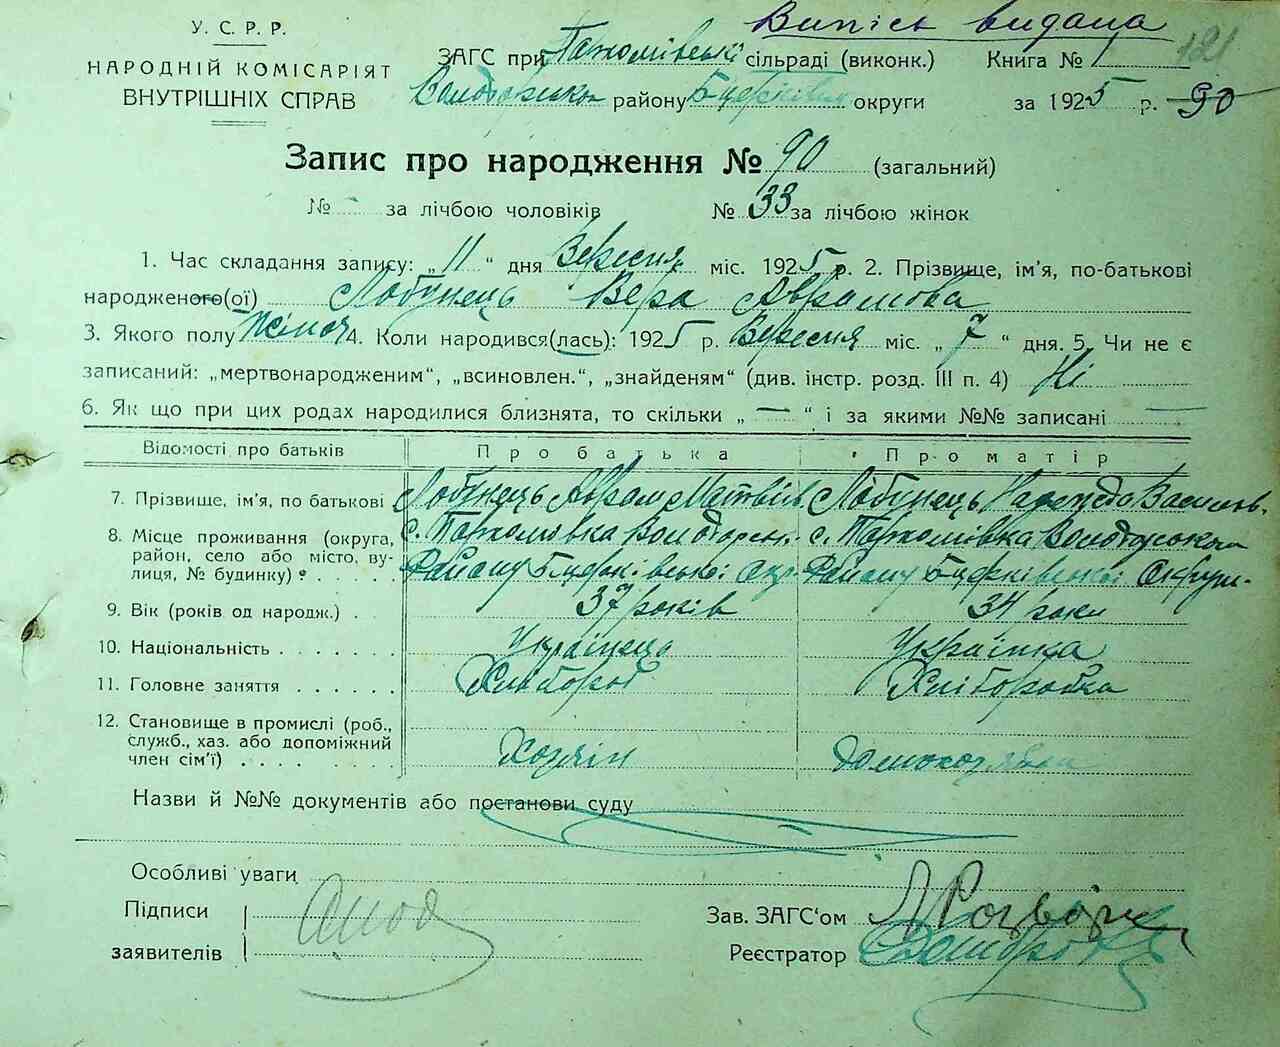 Випись видана
121
У. С. Р. Р.
НАРОДНІЙ КОМІСАРІЯТ
ВНУТРІШНІХ СПРАВ
ЗАГС при Пархомівські сільраді (виконк.) Книга № 1
Володарськом району Бцерківської округи за 1925 р. 90
Запис про народження № 90 (загальний)
№ - за лічбою чоловіків № 33 за лічбою жінок
1. Час складання запису: „11“ дня Вересня міс. 1925 р. 2. Прізвище, ім'я, по-батькові
народженого(ої) Лобунець Вера Аврамова
3. Якого полу жіноч 4. Коли народився(лась): 1925 р. Вересня міс. „7“ дня. 5. Чи не є
записаний: „мертвонародженим“, „всиновлен.“, „знайденям“ (див. інстр. розд. III п. 4) Ні
6. Як що при цих родах народилися близнята, то скільки „—“ і за якими №№ записані —
Відомості про батьків Про батька Про матір
7. Прізвище, ім'я, по батькові Лобунець Аврам Матвіїв Лобунець Надежда Васильв.
8. Місце проживання (округа, с. Пархомівка Володарськ. с. Пархомівка Володарського
район, село або місто, ву-
лиця, № будинку) Району Бцерківської Окр. Району Бцерківської Округи
9. Вік (років од народж.) 37 років 34 роки
10. Національність Українець Українка
11. Головне заняття Хлібороб Хліборобка
12. Становище в промислі (роб.,
служб., хаз. або допоміжний
член сім'ї) Хозяїн домохозяйка
Назви й №№ документів або постанови суду
Особливі уваги
Підписи
заявителів
Зав. ЗАГС'ом
Реєстратор